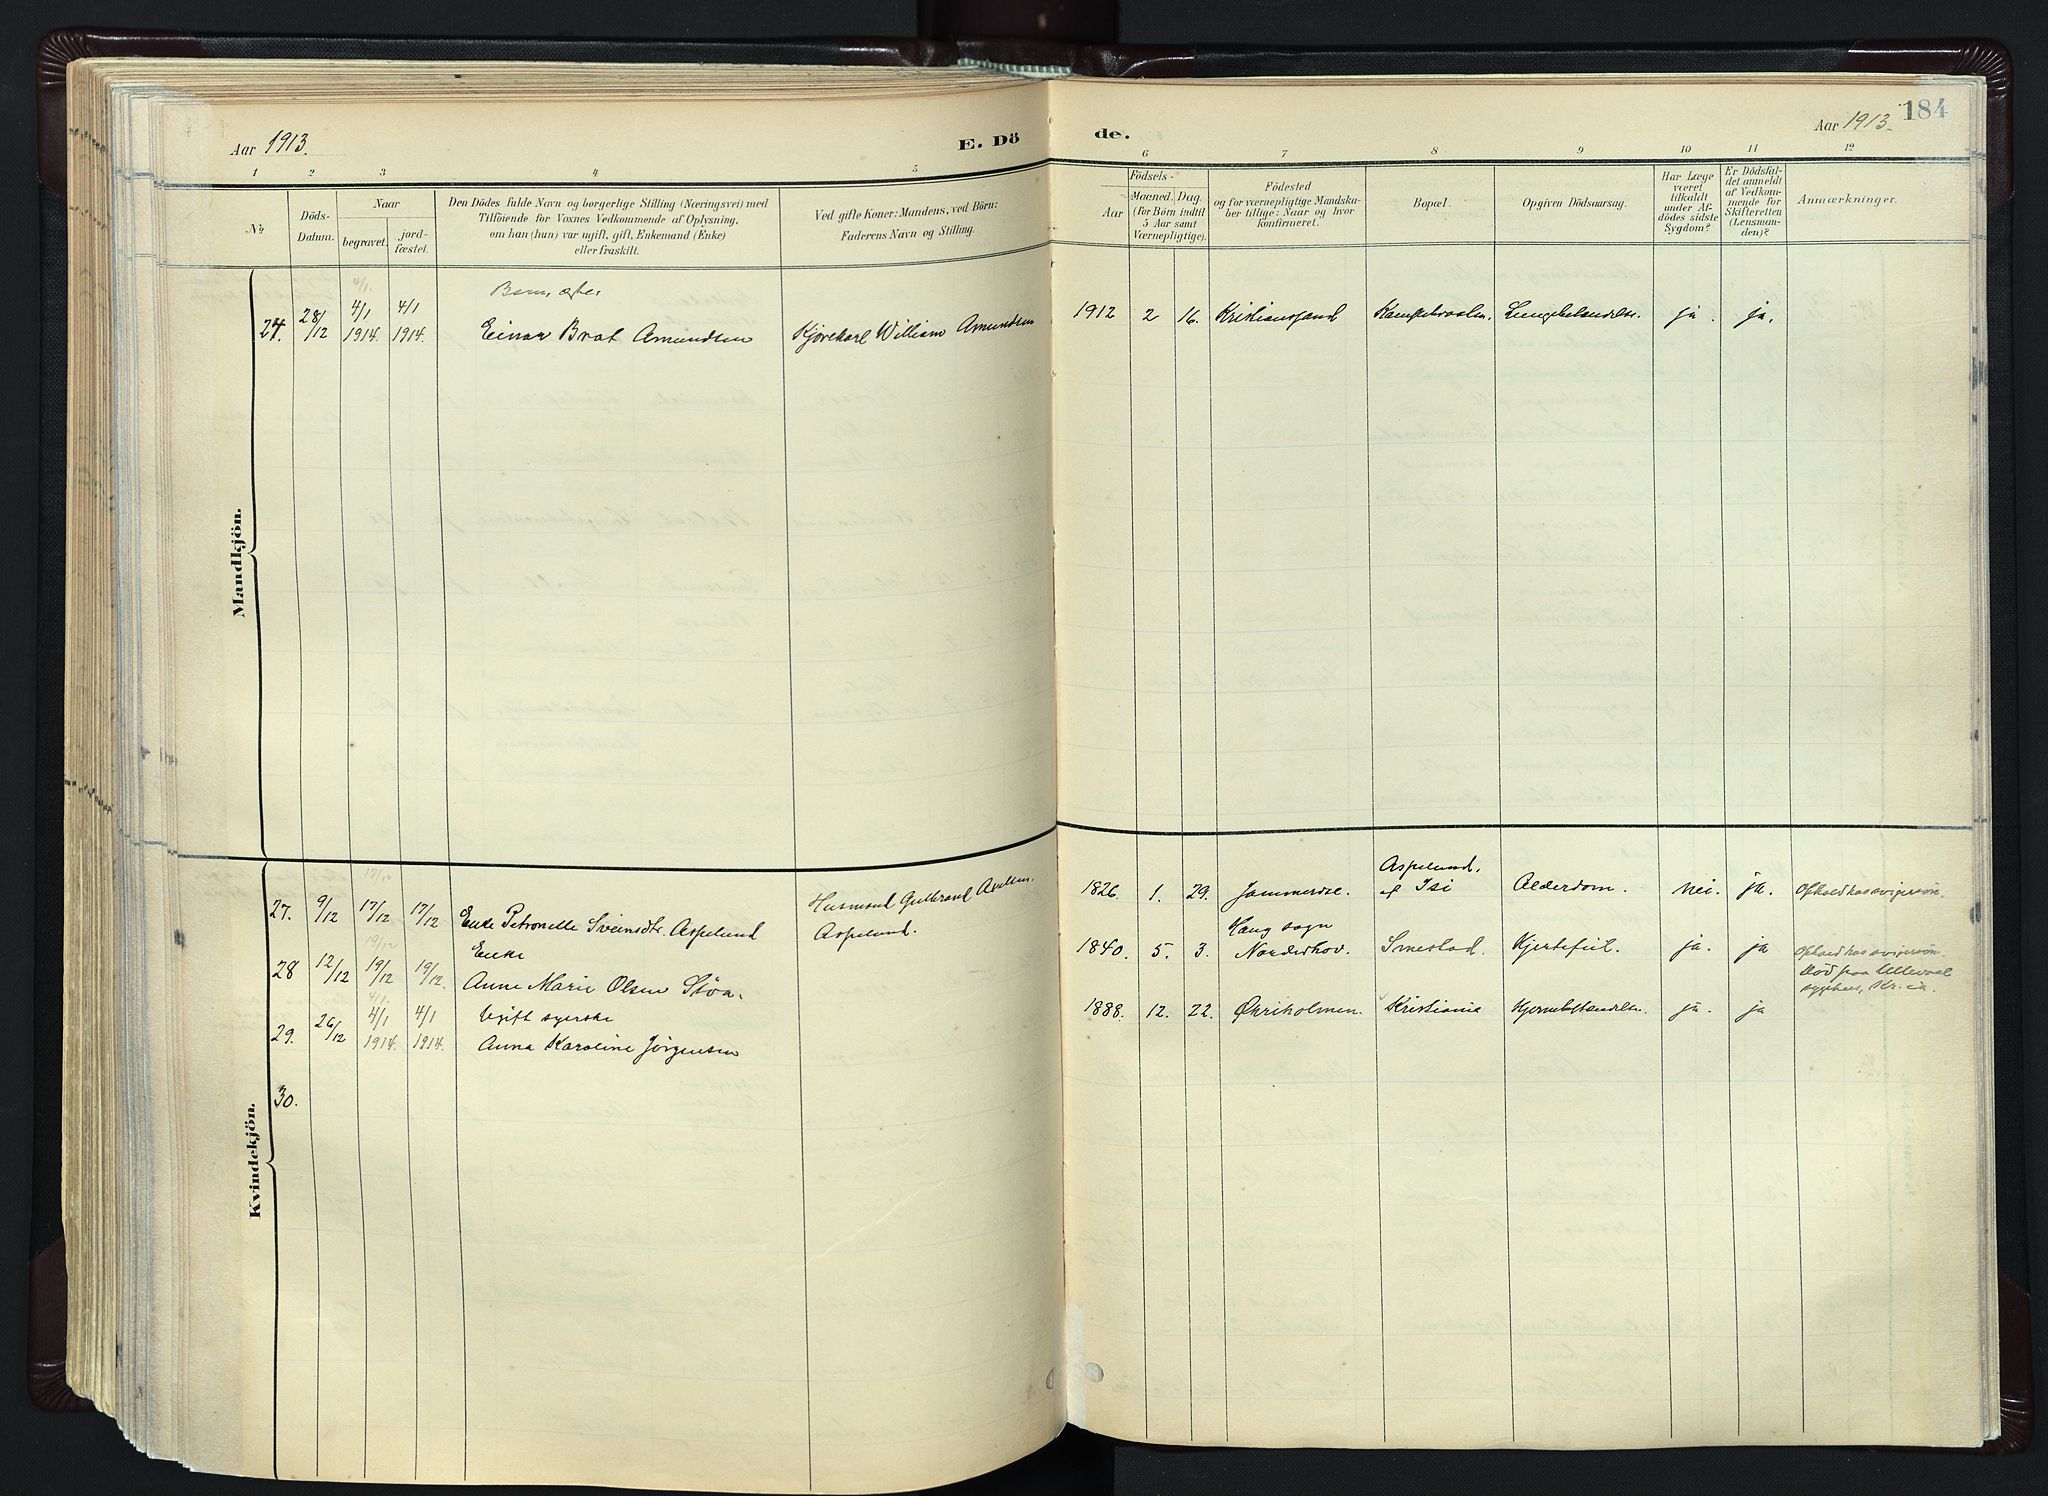 Aar 1913.
E. Dö
de.
Aar 1913.
184
1 2 3 4 5 6 7 8 9 10 11 12
No
Döds-
Datum.
Naar
begravet.
jord-
fæstet.
Den Dödes fulde Navn og borgerlige Stilling (Næringsvei) med
Tilföiende for Voxnes Vedkommende af Oplysning,
om han (hun) var ugift, gift, Enkemand (Enke)
eller fraskilt.
Ved gifte Koner: Mandens, ved Börn:
Faderens Navn og Stilling.
Aar
Födsels-
Maaned. Dag.
(for Börn indtil
5 Aar samt
Værnepligtige).
Födested
og for værnepligtige Mandska-
ber tillige: Naar og hvor
konfirmeret.
Bopæl.
Opgiven Dödsaarsag.
Har Læge
været
tilkaldt
under Af-
dödes sidste
Sygdom?
Er Dödsfal-
det anmeldt
af Vedkom-
mende for
Skifteretten
(Lensman-
den)?
Anmærkninger.
Mandkjön.
4/1.
Barn, ægte
24. 28/12 4/1 1914. 4/1 1914. Einar Amundsen Kjørekarl William Amundsen 1912 2 16. Kristianssand ja. ja.
Kvindekjön.
17/12
27. 9/12 17/12 17/12 Enke Petronelle Sveinsdtr. Aspelund Husmand Gulbrand Aspelund. 1826. 1. 29. Aspelund, Isi Alderdom. nei. ja.
19/12
Enke
28 12/12 19/12 19/12. Anne Marie Olsen Støa. 1840. 5. 3. Haug sogn Norderhov. Smestad. Hjertefeil. ja. ja
Død paa Ullevaal
sygehus, Kr.ia.
4/1.
Ugift syerske
29. 26/12 4/1 1914. 4/1 1914. Anna Karoline Jørgensen 1888. 12. 22. Økriholmen. Kristiania ja. ja
30.